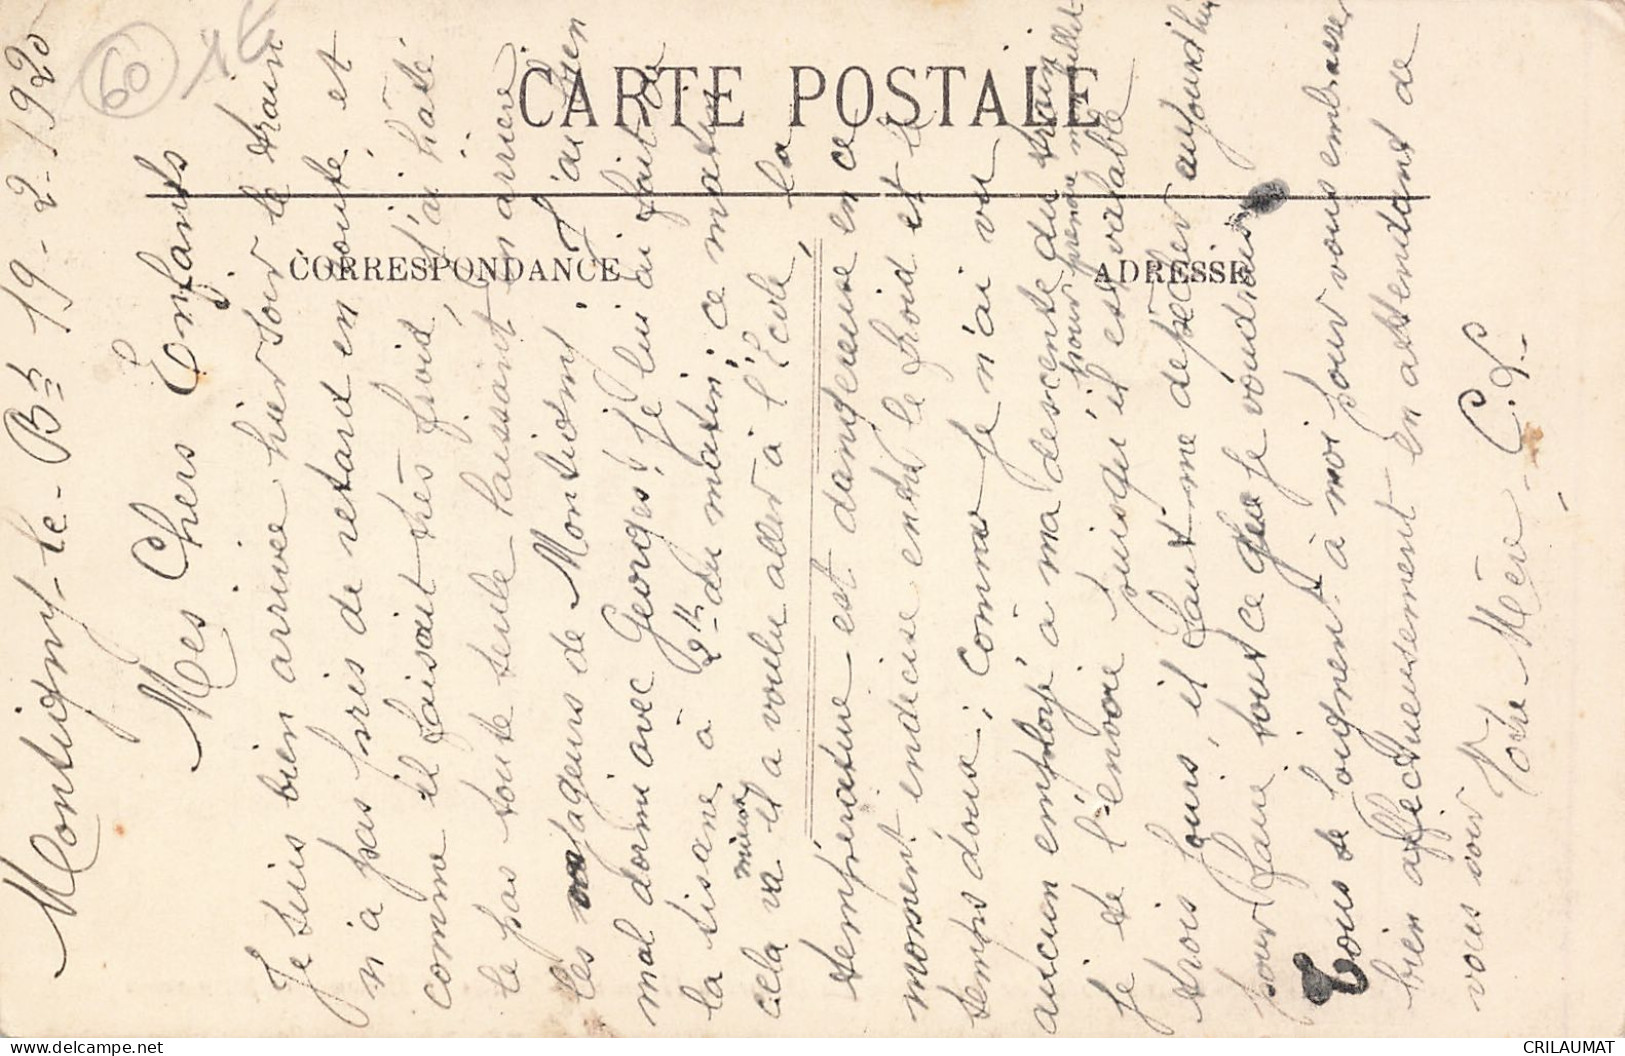 60 1€
CARTE POSTALE
CORRESPONDANCE
ADRESSE
Montigny-le-Bx 19-2-1920
Mes Chers Enfants
Je suis bien arrivée hier soir le train
n'a pas pris de retard en route et
comme il faisait très froid j'ai hâté
le pas toute seule laissant en arrière
les voyageurs de Montigny J'ai bien
mal dormi avec Georges! Je lui ai fait de
la tisane à 2h du matin; ce matin
cela va mieux il a voulu aller à l'Ecole, la
température est dangereuse en ce
moment indécise entre le froid et le
temps doux; comme je n'ai vu
aucun employé à ma descente du train
pour prendre mon billet
Je te l'envoie puisqu'il est valable
trois jours, il faut me dépêcher aujourd'hui
pour faire tout ce que je voudrais
Tous se joignent à moi pour vous embrasser
bien affectueusement en attendant de
vous voir
Votre Mère C.P.
CRILAUMAT